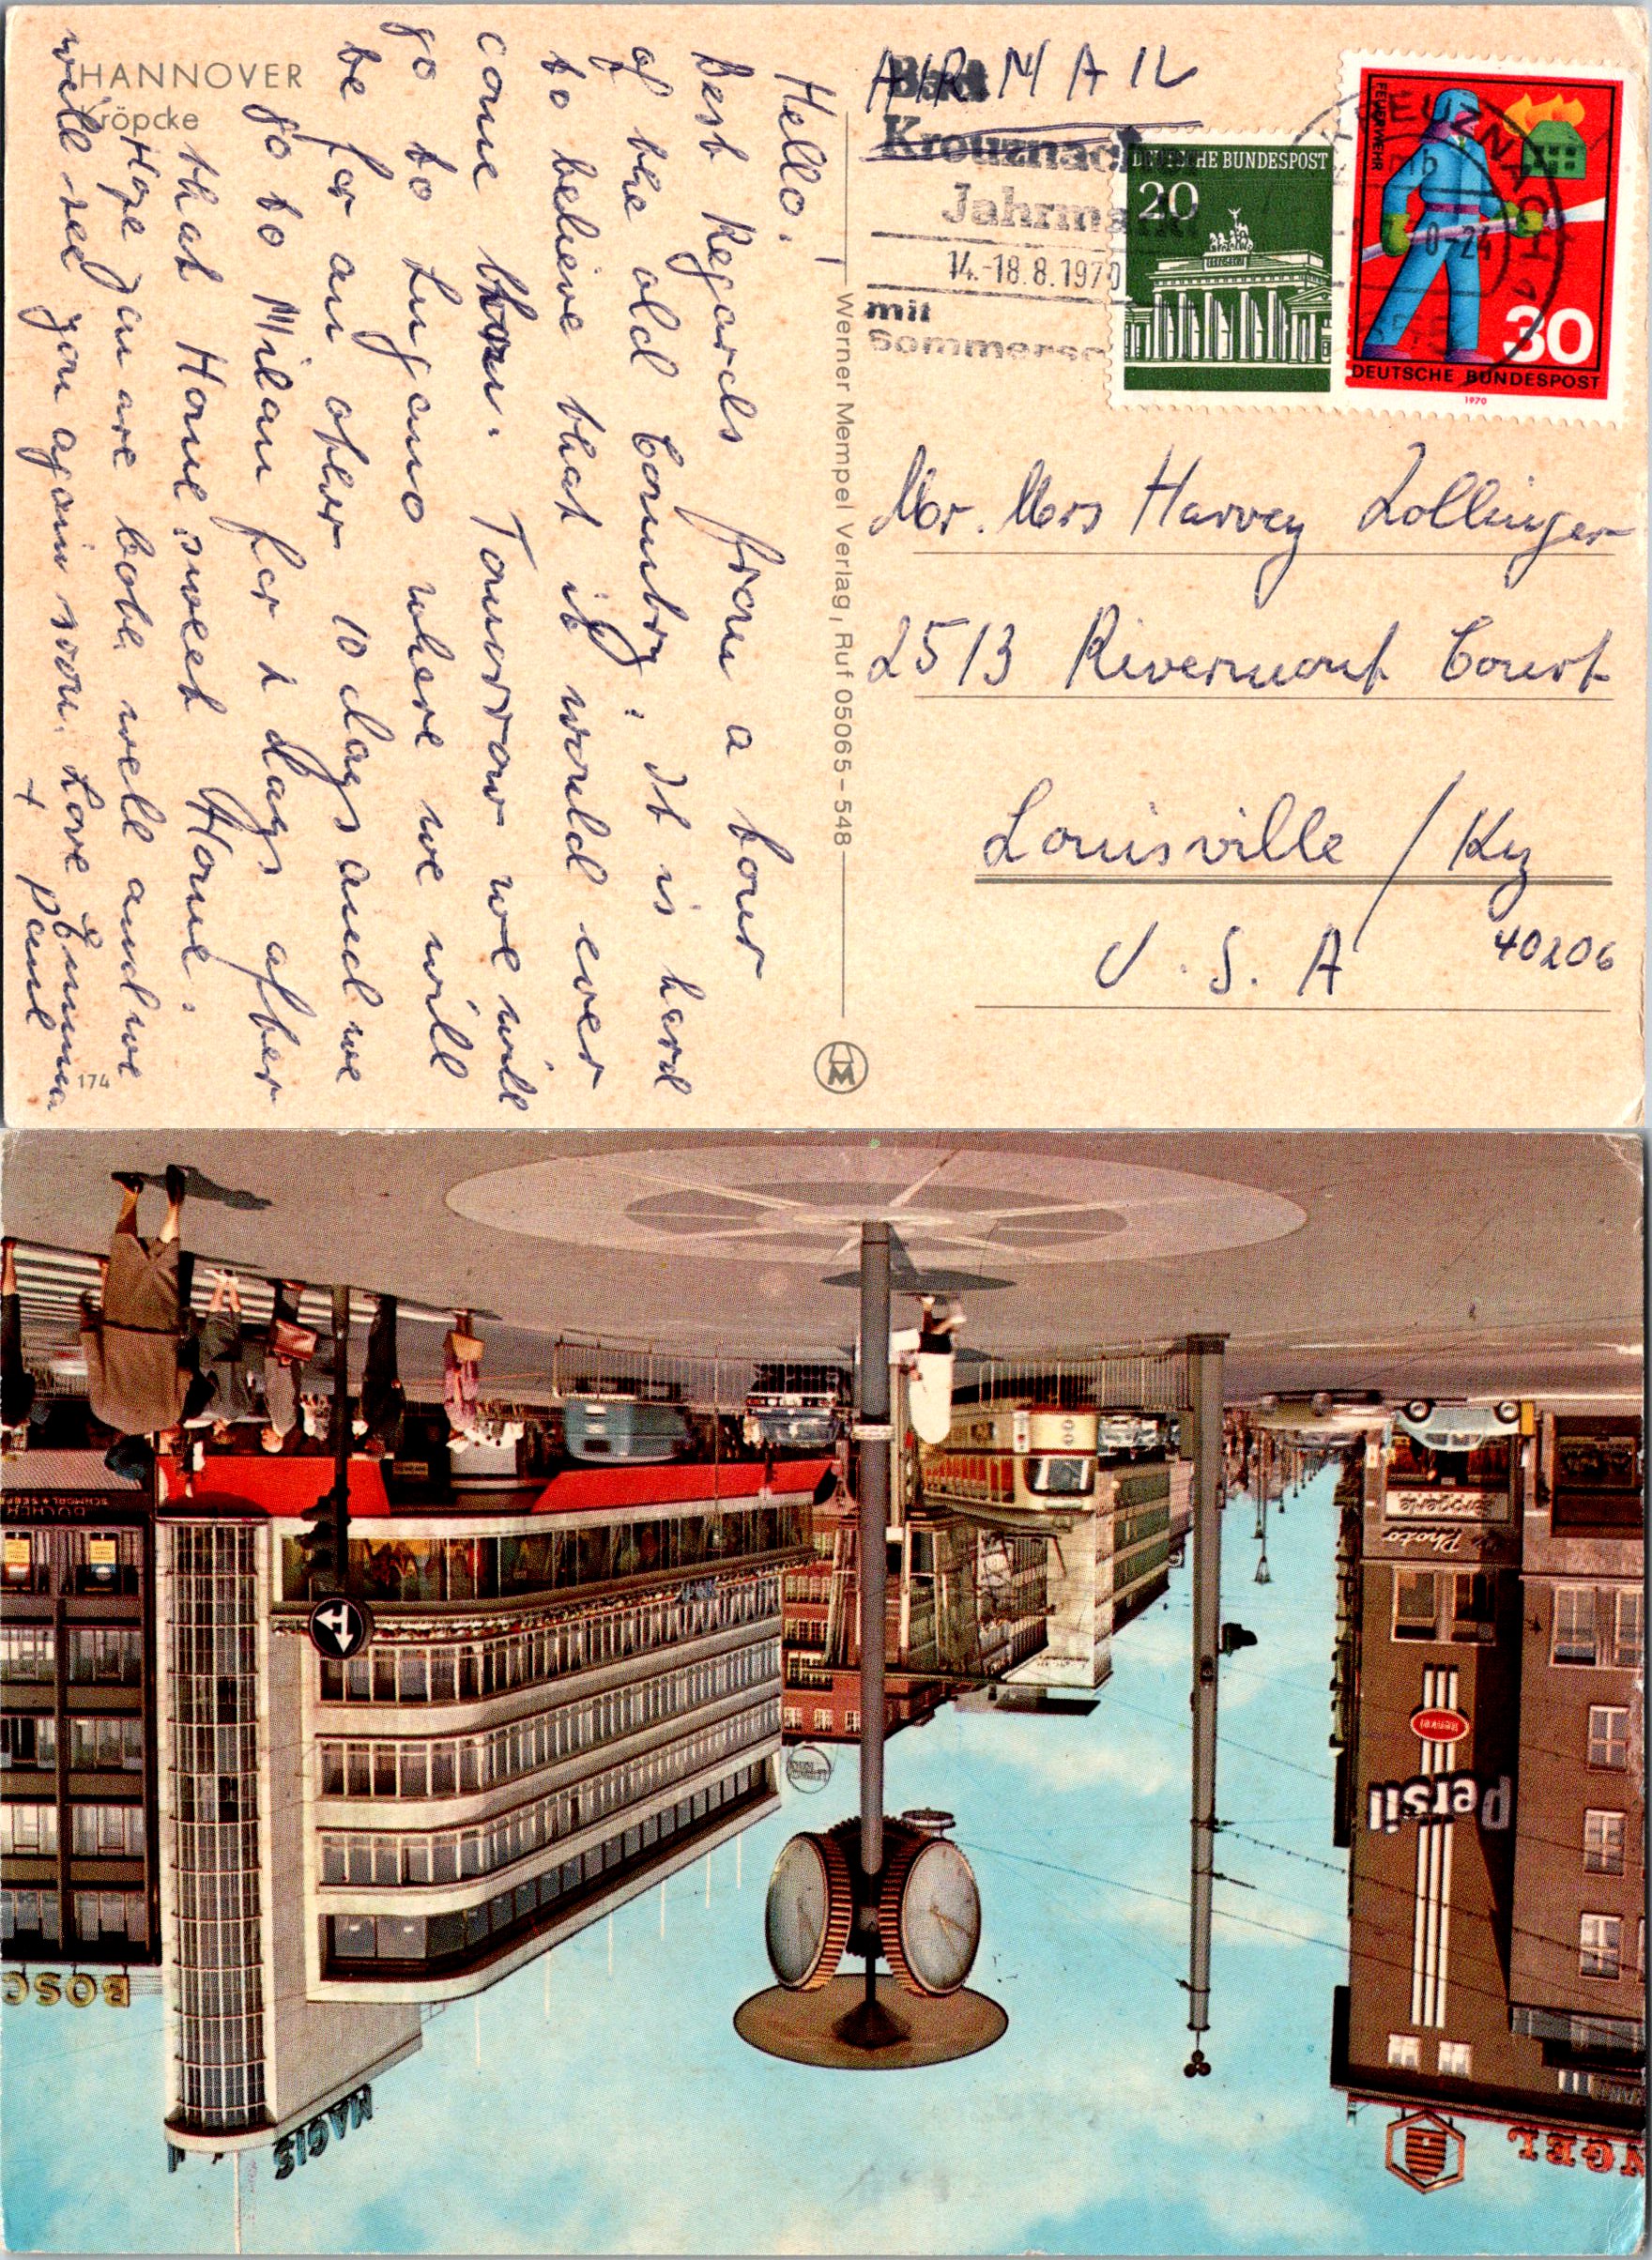 HANNOVER
Kröpcke
Hello!
Best Regards from a tour
of the old Country. It is hard
to believe that it would ever
come true. Tomorrow we will
go to Lugano where we will
be for an other 10 days and we
go to Milan for 2 days after
that Home sweet Home.
Hope you are both well and we
will see you again soon. Love Emma
+ Paul
174
Werner Mempel Verlag, Ruf 05065-548
AIR MAIL
Bad
Kreuznacher
Jahrmarkt
14.-18.8.1970
mit
Sommersc
DEUTSCHE BUNDESPOST
20
FEUERWEHR
30
DEUTSCHE BUNDESPOST
1970
EUZNACH
Mr. Mrs Harvey Zollinger
2513 Rivermont Court
Louisville / Ky
U. S. A 40206
BÜCHER
SCHMORL + SEEF
Drogerie
Photo
Henkel
Persil
BOSC
MAGIS
NGEL